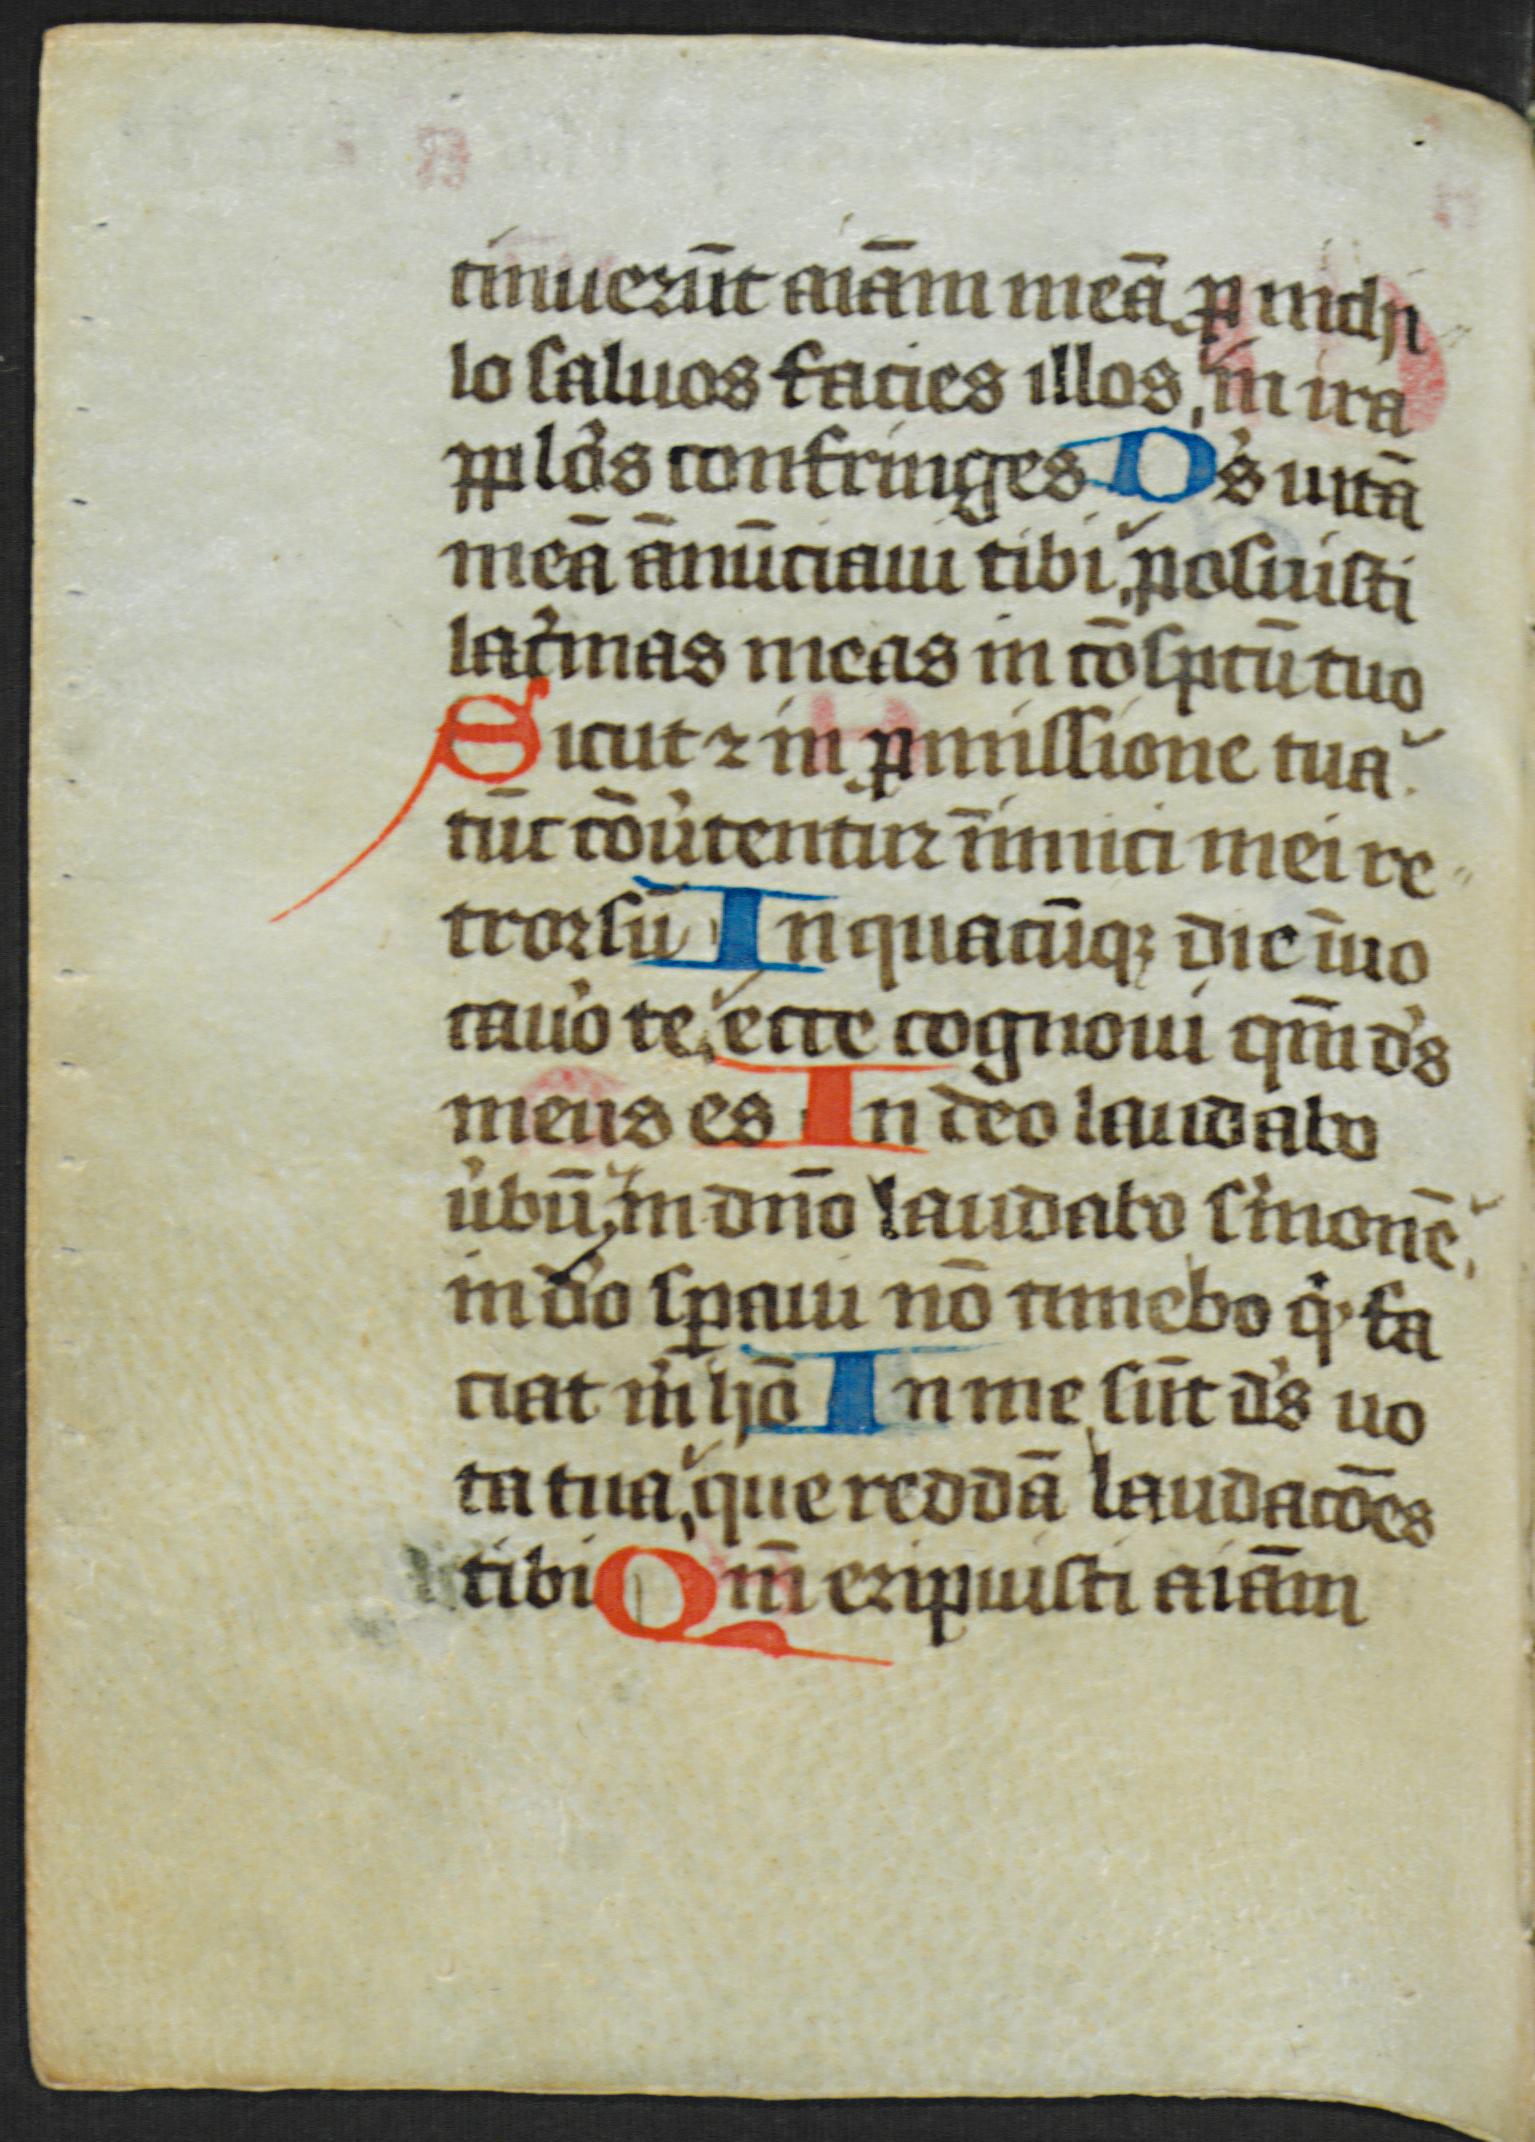 tinuerūt aīam meā ꝓ nichi
lo saluos facies illos, in ira
pplo's confringes D's uitā
meā ānūciaui tibi, posuisti
lac'mas meas in cōspctū tuo
Sicut ⁊ in ꝓmissione tua.
tūc cōu'tentur īimici mei re
trorsū In quacūqꝫ die īuo
cau'o te, ecce cognoui qm̄ d's
meus es In deo laudabo
u'bū, in dn̄o laudabo s'monē,
in d'o sꝑaui nō timebo qꝭ fa
ciat m̄ hō In me sūt d's uo
ta tua, que reddā laudacōes
tibi Qm̄ eripuisti aīam